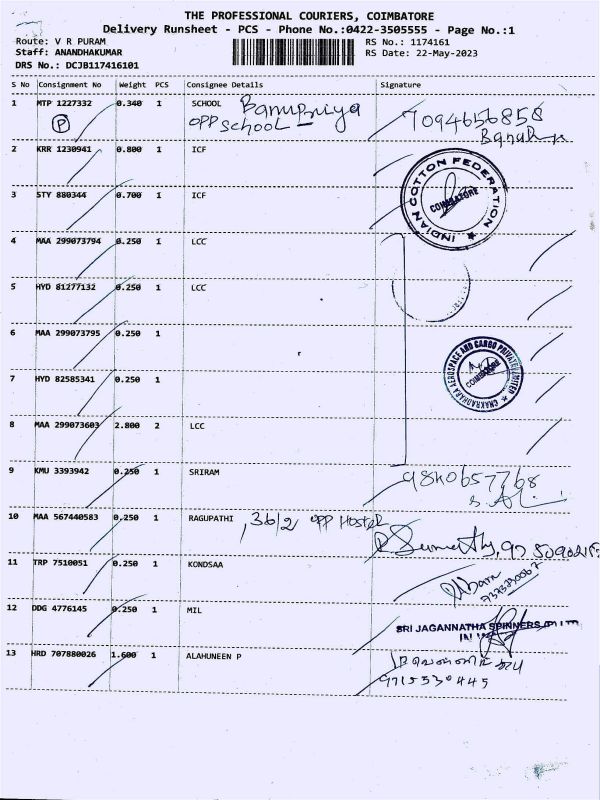 THE PROFESSIONAL COURIERS, COIMBATORE
Delivery Runsheet - PCS - Phone No.:0422-3505555 - Page No.:1
Route: V R PURAM RS No.: 1174161
Staff: ANANDHAKUMAR RS Date: 22-May-2023
DRS No.: DCJB117416101
S No Consignment No Weight PCS Consignee Details Signature
1 MTP 1227332 0.340 1 SCHOOL Banupriya 7094656858
P OPP School
2 KRR 1230941 0.800 1 ICF
INDIAN COTTON FEDERATION COIMBATORE
3 STY 880344 0.700 1 ICF
4 MAA 299073794 0.250 1 LCC
5 HYD 81277132 0.250 1 LCC
6 MAA 299073795 0.250 1
CHAKRADHARA AEROSPACE AND CARGO PRIVATE LIMITED COIMBATORE
7 HYD 82585341 0.250 1
8 MAA 299073603 2.800 2 LCC
9 KMU 3393942 0.250 1 SRIRAM
10 MAA 567440583 0.250 1 RAGUPATHI , 36/2 OPP Hostel
11 TRP 7510051 0.250 1 KONDSAA
12 DDG 4776145 0.250 1 MIL
SRI JAGANNATHA SPINNERS (P) LTD
13 HRD 707880026 1.600 1 ALAHUNEEN P
9715530445